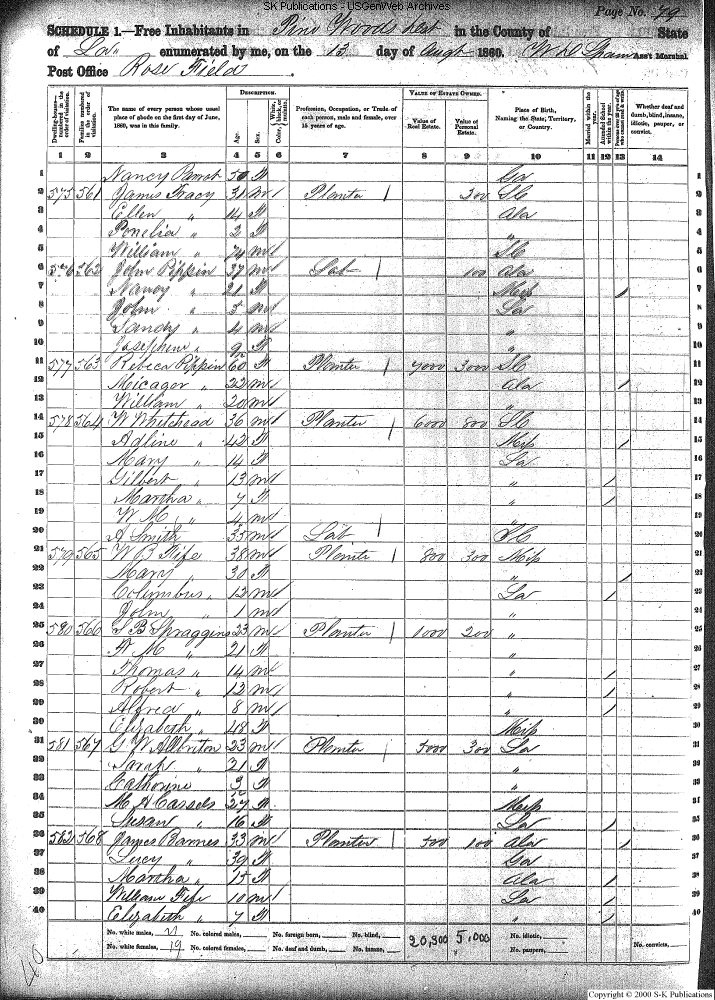 SK Publications - USGenWeb Archives
Page No. 79
SCHEDULE 1.—Free Inhabitants in Pine Woods Dist in the County of State
of La enumerated by me, on the 13 day of Augt 1860. Ass't Marshal
Post Office Rose Field
Dwelling-houses—numbered in the order of visitation.
Families numbered in the order of visitation.
The name of every person whose usual place of abode on the first day of June, 1860, was in this family.
DESCRIPTION.
Age.
Sex.
Color, White, black, or mulatto.
Profession, Occupation, or Trade of each person, male and female, over 15 years of age.
VALUE OF ESTATE OWNED.
Value of Real Estate.
Value of Personal Estate.
Place of Birth, Naming the State, Territory, or Country.
Married within the year.
Attended School within the year.
Persons over 20 y'rs of age who cannot read & write.
Whether deaf and dumb, blind, insane, idiotic, pauper, or convict.
1 2 3 4 5 6 7 8 9 10 11 12 13 14
1 Nancy 50 F Ga 1
2 575 561 James Tracy 31 m Planter / 300 SC 2
3 Ellen " 14 F Ala 3
4 " 2 F " 4
5 William " 74 m SC 5
6 576 562 John Pippin 37 m Lab / 100 Ala 6
7 Nancy " 21 F Miss / 7
8 John " 5 m La 8
9 Sandy " 4 m " 9
10 Josephine " F " 10
11 577 563 Rebeca Pippin 60 F Planter / 7000 3000 SC 11
12 Micager " 22 m Ala / 12
13 William " 20 m " 13
14 578 564 W Whitehead 36 m Planter / 6000 800 SC 14
15 Adline " 42 F Miss / 15
16 Mary " 14 F La 16
17 Gilbert " 13 m " / 17
18 Martha " 7 F " / 18
19 W M " 4 m " 19
20 A Smith 35 m Lab / SC 20
21 579 565 W B Fife 38 m Planter / 800 300 Miss 21
22 Mary " 30 F " / 22
23 Columbus " 12 m La / 23
24 John " 1 m " 24
25 580 566 S B Spraggins 23 m Planter / 1000 200 " 25
26 M " 21 F " 26
27 Thomas " 14 m " / 27
28 Robert " 12 m " / 28
29 Alfred " 8 m " / 29
30 Elizabeth " 48 F Miss 30
31 581 567 G W Allbriton 23 m Planter / 5000 300 La 31
32 Sarah " 21 F " 32
33 Catherine " 3 F " 33
34 M A Cassels 27 F Miss 34
35 Susan " 16 F La / 35
36 582 568 James Barnes 33 m Planter / 500 100 Ala / 36
37 Lucy " 39 F Ga 37
38 Martha " 15 F Ala / 38
39 William Fife 10 m La / 39
40 Elizabeth " 7 F " / 40
No. white males, 21 No. colored males, No. foreign born, No. blind, 20,300 5,000 No. idiotic,
No. white females, 19 No. colored females, No. deaf and dumb, No. insane, No. paupers, No. convicts,
40
Copyright © 2000 S-K Publications